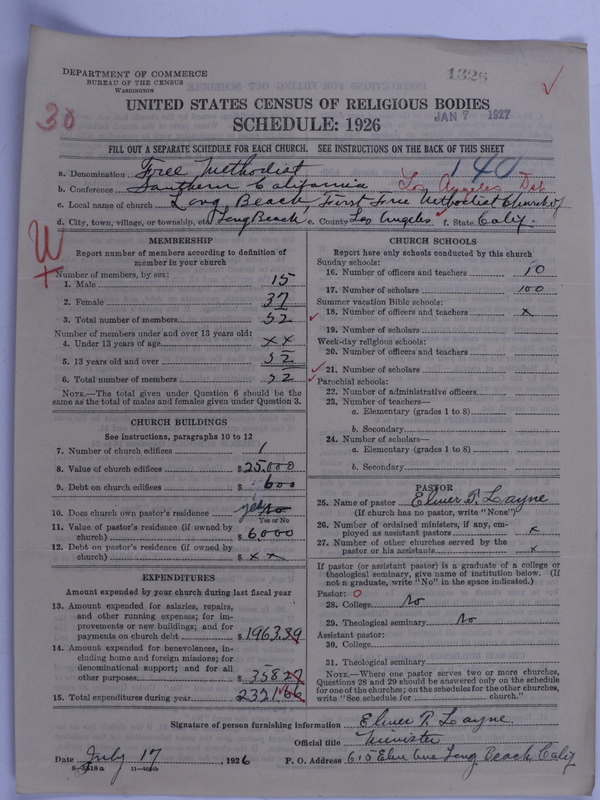 DEPARTMENT OF COMMERCE
BUREAU OF THE CENSUS
WASHINGTON
1326
30
UNITED STATES CENSUS OF RELIGIOUS BODIES
JAN 7 1927
SCHEDULE: 1926
FILL OUT A SEPARATE SCHEDULE FOR EACH CHURCH. SEE INSTRUCTIONS ON THE BACK OF THIS SHEET
140
a. Denomination Free Methodist
b. Conference Southern California Los Angeles Dst
c. Local name of church Long Beach, First Free Methodist Church of
d. City, town, village, or township, etc. Long Beach e. County Los Angeles f. State Calif.
W
MEMBERSHIP
Report number of members according to definition of
member in your church
Number of members, by sex:
1. Male 15
2. Female 37
3. Total number of members 52
Number of members under and over 13 years old:
4. Under 13 years of age xx
5. 13 years old and over 52
6. Total number of members 52
NOTE.—The total given under Question 6 should be the
same as the total of males and females given under Question 3.
CHURCH BUILDINGS
See instructions, paragraphs 10 to 12
7. Number of church edifices 1
8. Value of church edifices $25,000
9. Debt on church edifices $ 600
10. Does church own pastor's residence yes No
Yes or No
11. Value of pastor's residence (if owned by
church) $ 6000
12. Debt on pastor's residence (if owned by
church) $ xx
EXPENDITURES
Amount expended by your church during last fiscal year
13. Amount expended for salaries, repairs,
and other running expenses; for im-
provements or new buildings; and for
payments on church debt $ 1963.39
14. Amount expended for benevolences, in-
cluding home and foreign missions; for
denominational support; and for all
other purposes $ 358.27
15. Total expenditures during year 2321.66
CHURCH SCHOOLS
Report here only schools conducted by this church
Sunday schools:
16. Number of officers and teachers 10
17. Number of scholars 100
Summer vacation Bible schools:
18. Number of officers and teachers x
19. Number of scholars
Week-day religious schools:
20. Number of officers and teachers
21. Number of scholars
Parochial schools:
22. Number of administrative officers
23. Number of teachers—
a. Elementary (grades 1 to 8)
b. Secondary
24. Number of scholars—
a. Elementary (grades 1 to 8)
b. Secondary
PASTOR
25. Name of pastor Elmer P. Layne
(If church has no pastor, write "None")
26. Number of ordained ministers, if any, em-
ployed as assistant pastors x
27. Number of other churches served by the
pastor or his assistants x
If pastor (or assistant pastor) is a graduate of a college or
theological seminary, give name of institution below. (If
not a graduate, write "No" in the space indicated.)
Pastor: O
28. College No
29. Theological seminary No
Assistant pastor:
30. College
31. Theological seminary
NOTE.—Where one pastor serves two or more churches,
Questions 28 and 29 should be answered only on the schedule
for one of the churches; on the schedules for the other churches,
write "See schedule for church."
Signature of person furnishing information Elmer P. Layne
Official title Minister
Date July 17, 1926 P. O. Address 615 Elm Ave Long Beach, Calif